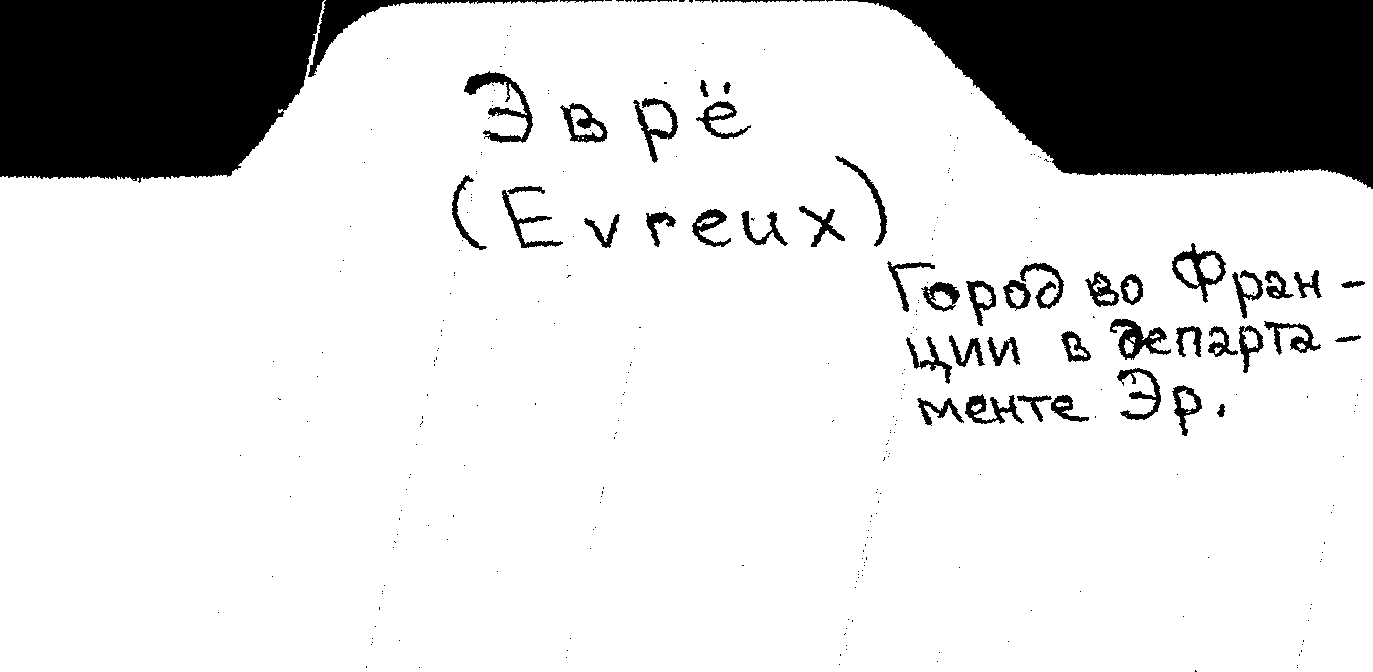 Эврё
(Evreux)
Город во Фран-
ции в департа-
менте Эр.